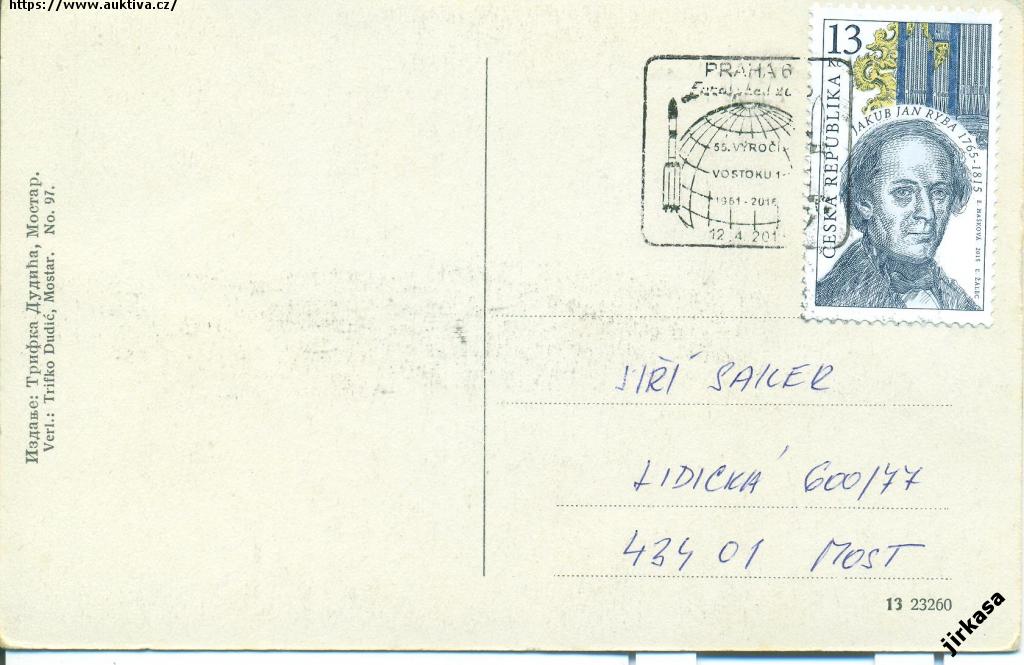 https://www.auktiva.cz/
Издање: Трифка Дудића, Мостар.
Verl.: Trifko Dudić, Mostar. No. 97.
PRAHA 6
55. VÝROČÍ
VOSTOKU 1
1961 - 2016
12. 4. 201
13 Kč
ČESKÁ REPUBLIKA
JAKUB JAN RYBA 1765-1815
JIŘÍ SAILER
LIDICKÁ 600/77
434 01 MOST
13 23260
jirkasa